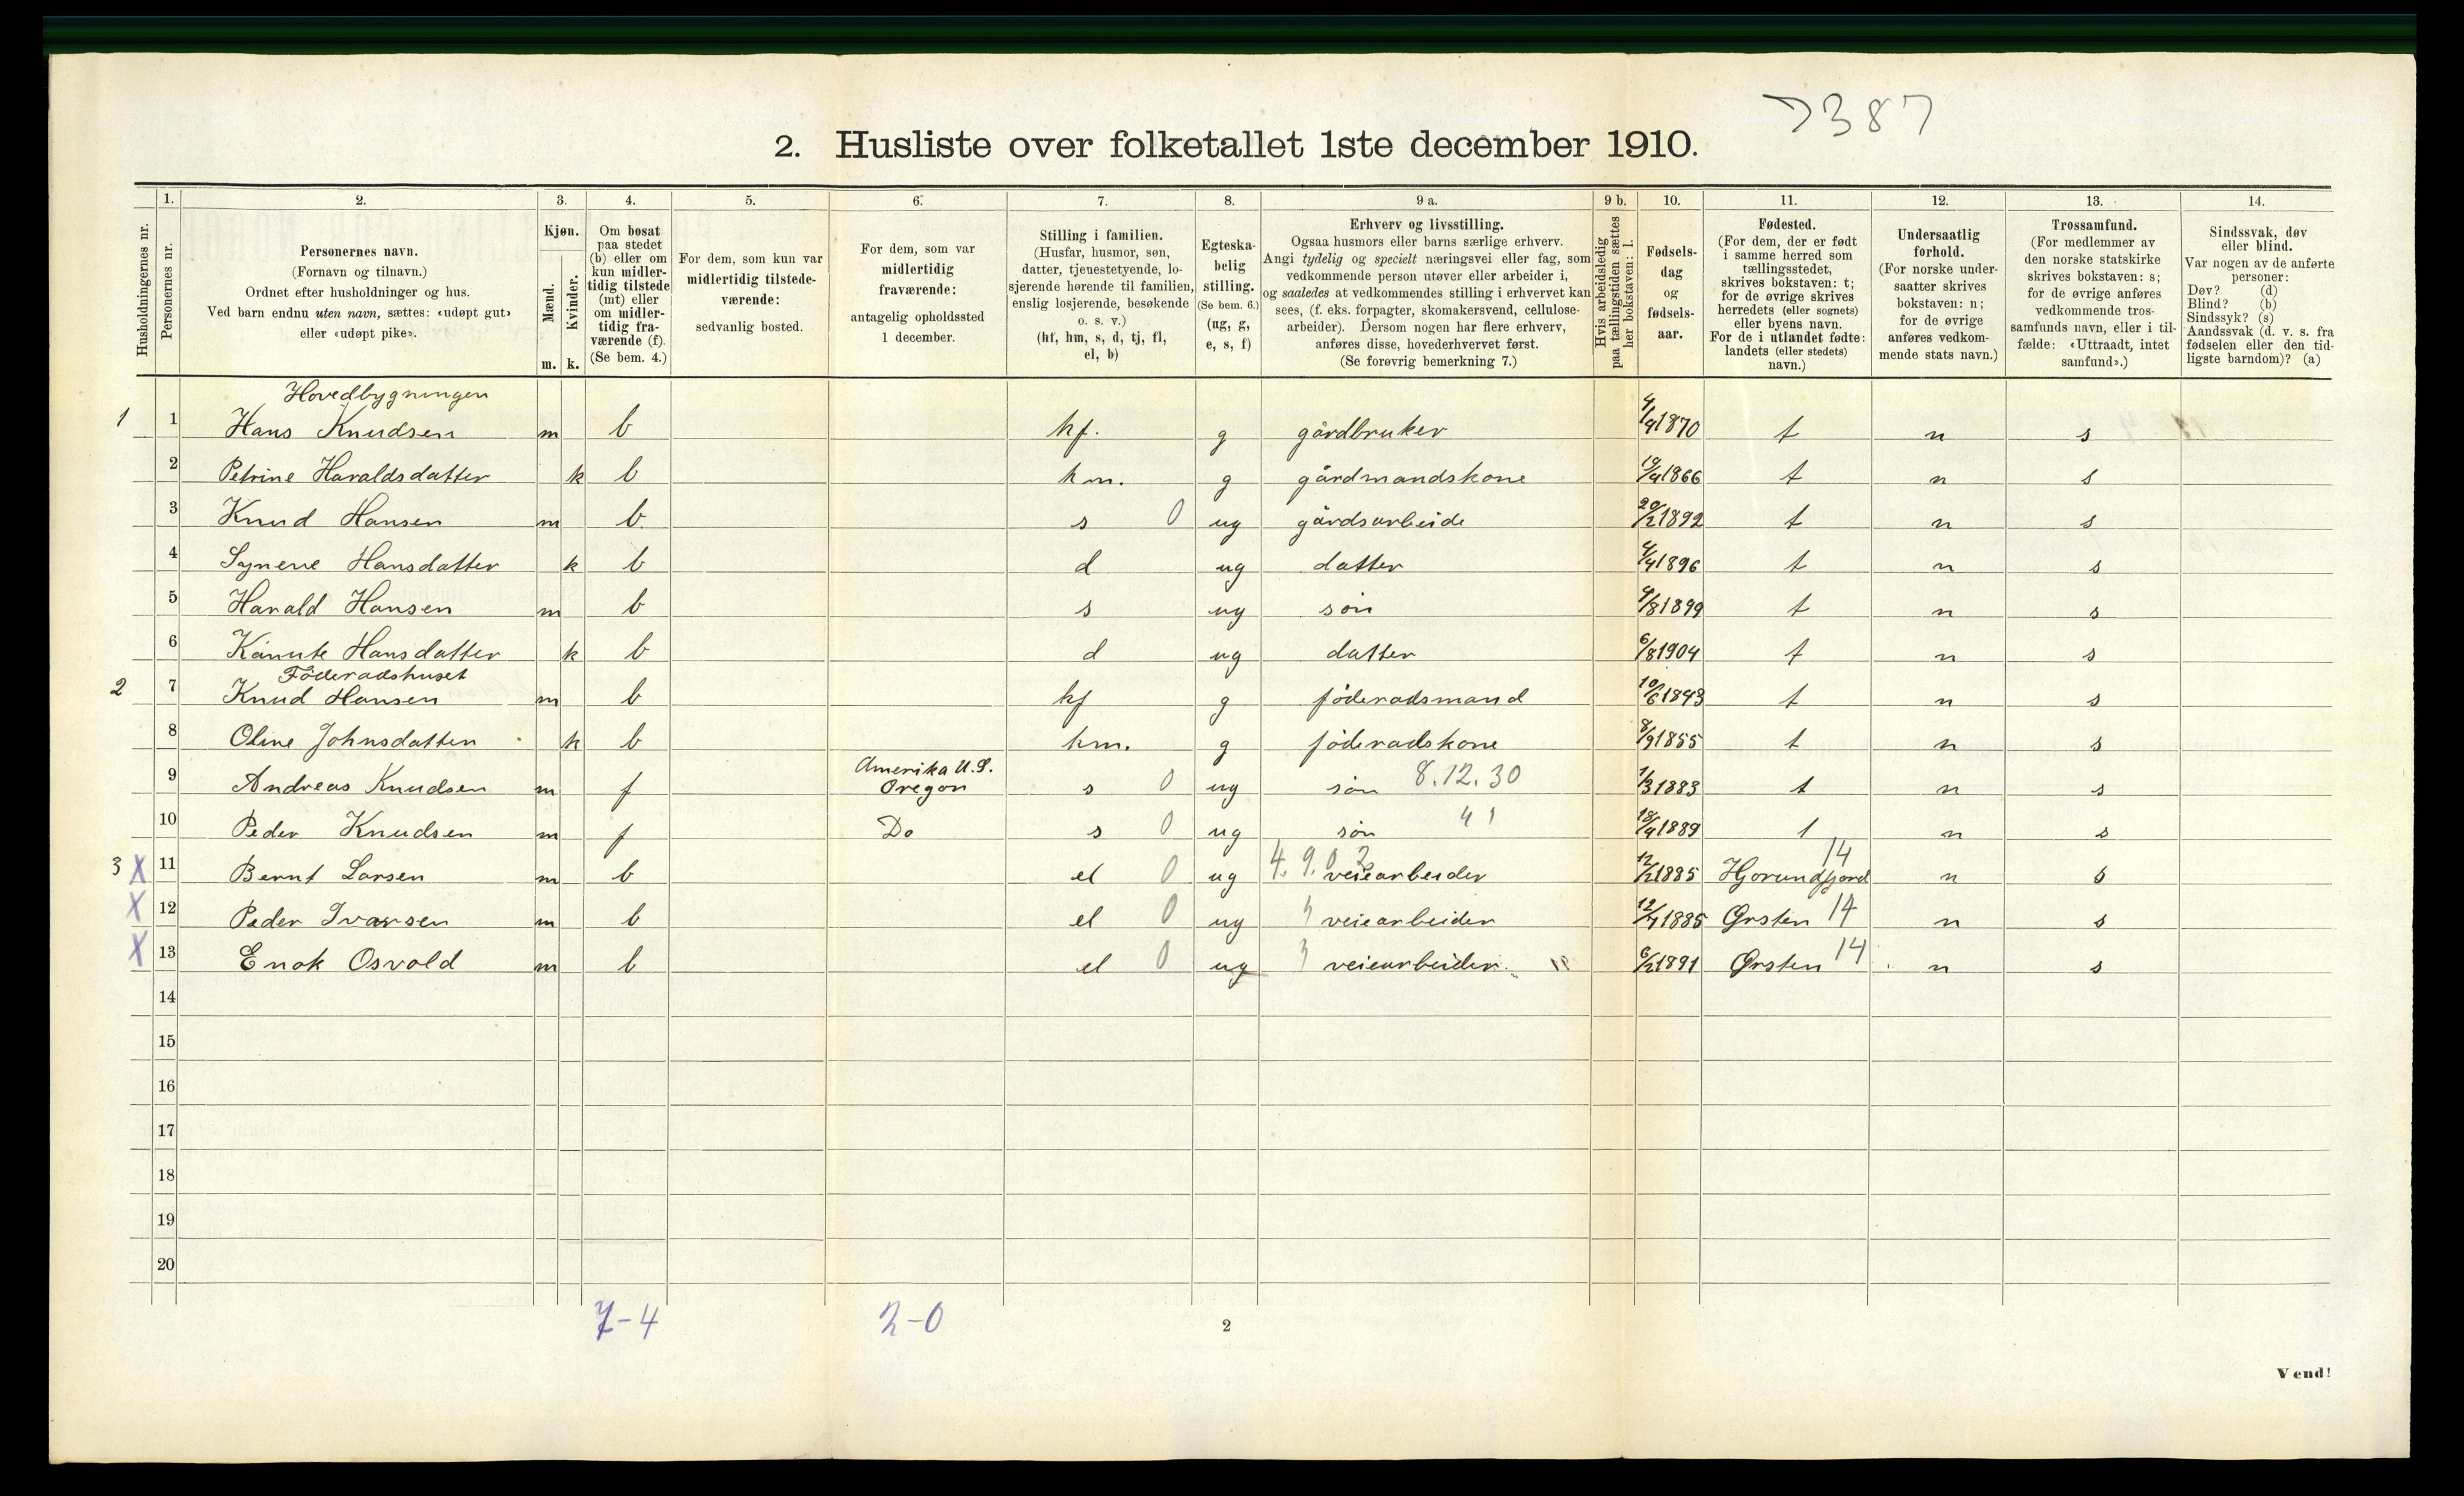 7387
2. Husliste over folketallet 1ste december 1910.
Husholdningernes nr.
1. Personernes nr.
2. Personernes navn. (Fornavn og tilnavn.) Ordnet efter husholdninger og hus. Ved barn endnu uten navn, sættes: «udøpt gut» eller «udøpt pike».
3. Kjøn. Mænd. m. Kvinder. k.
4. Om bosat paa stedet (b) eller om kun midlertidig tilstede (mt) eller om midlertidig fraværende (f). (Se bem. 4.)
5. For dem, som kun var midlertidig tilstedeværende: sedvanlig bosted.
6. For dem, som var midlertidig fraværende: antagelig opholdssted 1 december.
7. Stilling i familien. (Husfar, husmor, søn, datter, tjenestetyende, losjerende hørende til familien, enslig losjerende, besøkende o. s. v.) (hf, hm, s, d, tj, fl, el, b)
8. Egteskabelig stilling. (Se bem. 6.) (ug, g, e, s, f)
9 a. Erhverv og livsstilling. Ogsaa husmors eller barns særlige erhverv. Angi tydelig og specielt næringsvei eller fag, som vedkommende person utøver eller arbeider i, og saaledes at vedkommendes stilling i erhvervet kan sees, (f. eks. forpagter, skomakersvend, cellulosearbeider). Dersom nogen har flere erhverv, anføres disse, hovederhvervet først. (Se forøvrig bemerkning 7.)
9 b. Hvis arbeidsledig paa tællingstiden sættes her bokstaven: l.
10. Fødselsdag og fødselsaar.
11. Fødested. (For dem, der er født i samme herred som tællingsstedet, skrives bokstaven: t; for de øvrige skrives herredets (eller sognets) eller byens navn. For de i utlandet fødte: landets (eller stedets) navn.)
12. Undersaatlig forhold. (For norske undersaatter skrives bokstaven: n; for de øvrige anføres vedkommende stats navn.)
13. Trossamfund. (For medlemmer av den norske statskirke skrives bokstaven: s; for de øvrige anføres vedkommende trossamfunds navn, eller i tilfælde: «Uttraadt, intet samfund».)
14. Sindssvak, døv eller blind. Var nogen av de anførte personer: Døv? (d) Blind? (b) Sindssyk? (s) Aandssvak (d. v. s. fra fødselen eller den tidligste barndom)? (a)
Hovedbygningen
1 1 Hans Knudsen m b hf. g gårdbruker 4/9 1870 t n s
2 Petrine Haraldsdatter k b hm. g gårdmandskone 19/9 1866 t n s
3 Knud Hansen m b s 0 ug gårdsarbeide 20/2 1892 t n s
4 Synene Hansdatter k b d ug datter 4/4 1896 t n s
5 Harald Hansen m b s ug søn 9/8 1899 t n s
6 Kanute Hansdatter k b d ug datter 6/8 1904 t n s
Föderadshuset
2 7 Knud Hansen m b hf g föderadsmand 10/6 1843 t n s
8 Oline Johnsdatter k b hm. g föderadskone 8/9 1855 t n s
9 Andreas Knudsen m f Amerika U.S. Oregon s 0 ug søn 8.12.30 1/3 1883 t n s
10 Peder Knudsen m f Do s 0 ug søn 18/9 1889 t n s
3 X 11 Bernt Larsen m b el 0 ug 4.9.02 veiearbeider 12/2 1885 Hjorundfjord 14 n s
X 12 Peder Ivarsen m b el 0 ug veiearbeider 12/7 1885 Ørsten 14 n s
X 13 Enok Osvold m b el 0 ug veiearbeider 6/2 1891 Ørsten 14 n s
14
15
16
17
18
19
20
7-4 2-0
2
Vend!